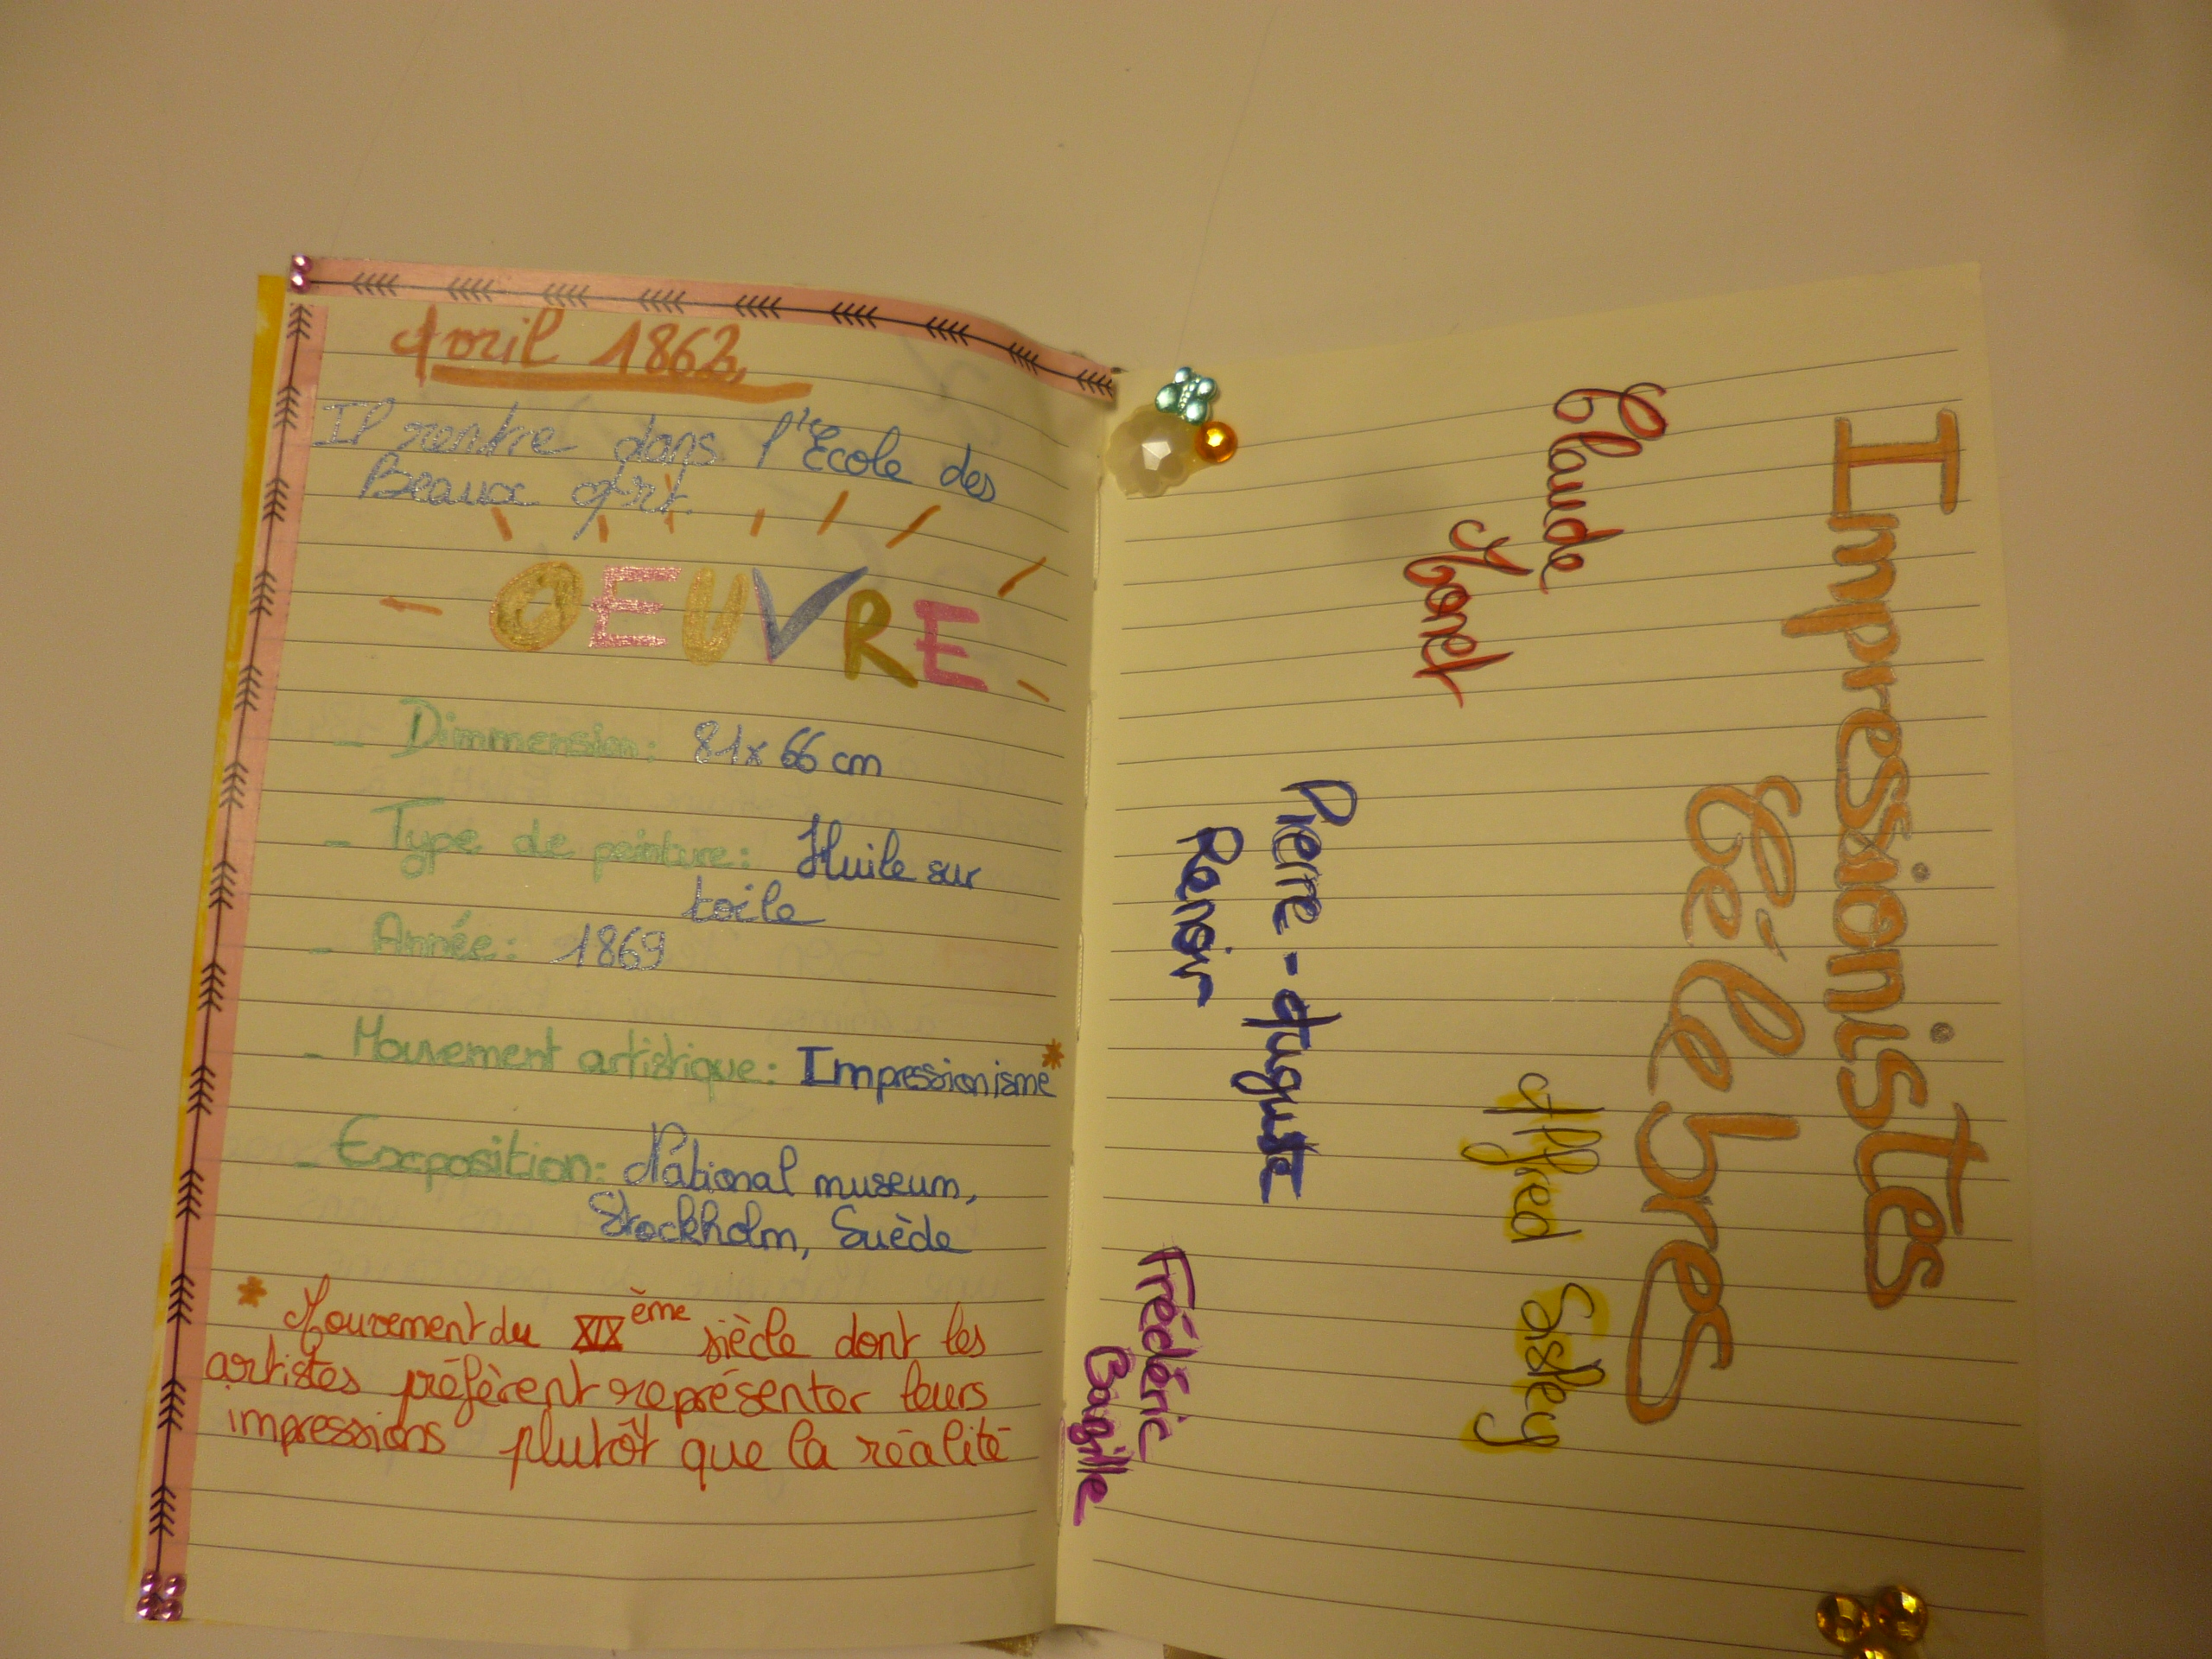 Avril 1862,
Il rentre dans l'École des
Beaux Art.
OEUVRE
- Dimmension: 81x66 cm
- Type de peinture: Huile sur
toile
- Année: 1869
- Mouvement artistique: Impressionisme*
- Exposition: National museum,
Stockholm, Suède
* Mouvement du XIXème siècle dont les
artistes préfèrent représenter leurs
impressions plutôt que la réalité
Impressionistes
Célèbres
Claude
Monet
Alfred Sisley
Pierre-Auguste
Renoir
Frédéric
Bazille